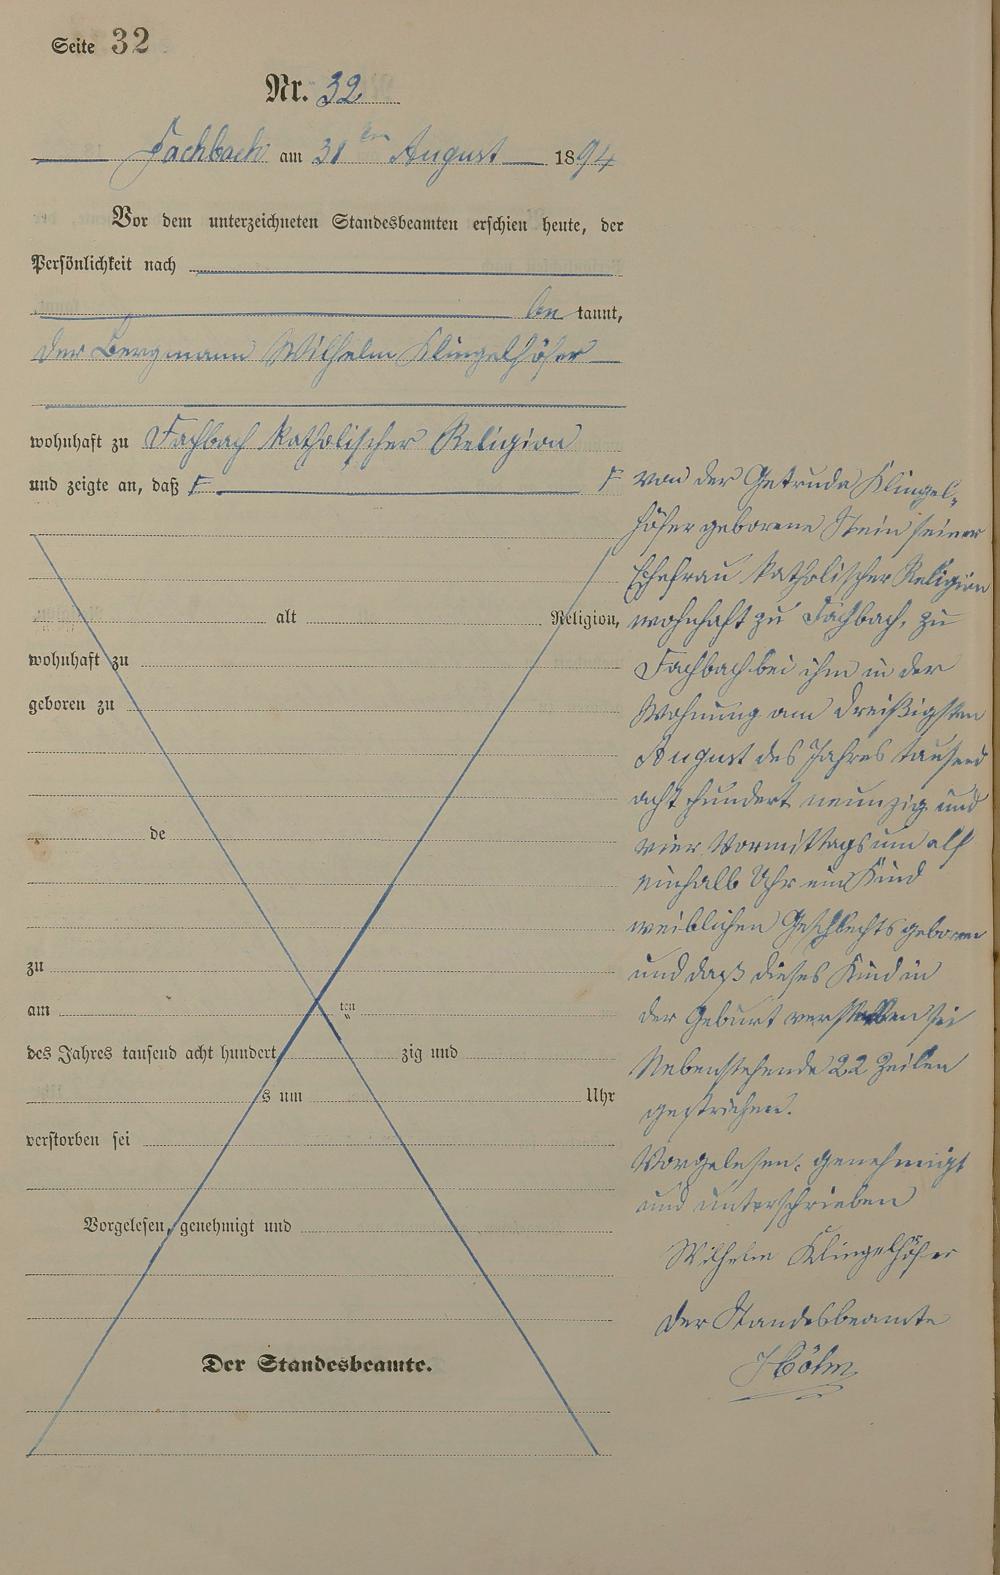 Seite 32
Nr. 32
Fachbach am 31ten August 1894
Vor dem unterzeichneten Standesbeamten erschien heute, der
Persönlichkeit nach
be kannt,
der Bergmann Wilhelm Klingelhöfer
wohnhaft zu Fachbach katholischer Religion
und zeigte an, daß F
F von der Getruda Klingel-
höfer geborene Stein seiner
Ehefrau katholischer Religion
wohnhaft zu Fachbach, zu
Fachbach bei ihm in der
Wohnung am dreißigsten
August des Jahres tausend
acht hundert neunzig und
vier Vormittags um elf
einhalb Uhr ein Kind
weiblichen Geschlechts geboren
und daß dieses Kind in
der Geburt verstorben sei
Nebenstehende 22 Zeilen
gestrichen.
Vorgelesen, genehmigt
und unterschrieben
Wilhelm Klingelhöfer
der Standesbeamte
alt Religion,
wohnhaft zu
geboren zu
de
zu
am ten
des Jahres tausend acht hundert zig und
s um Uhr
verstorben sei
Vorgelesen, genehmigt und
Der Standesbeamte.